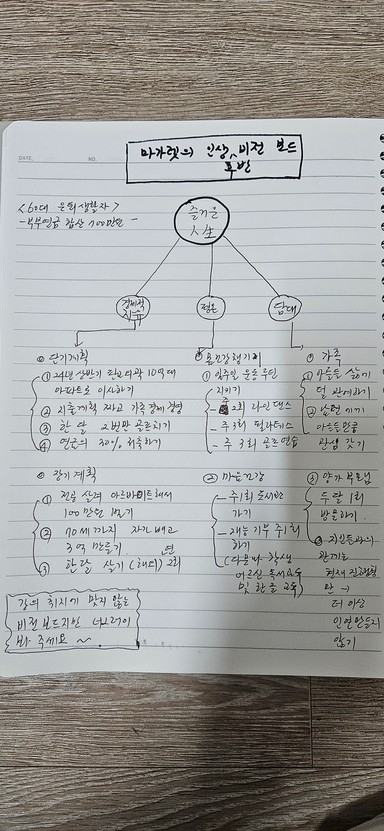 DATE. NO.
마가렛의 인생 비전 보드
후반
<60대 은퇴생활자>
- 부부연금 합산 700만원 -
즐거운
人生
경제적
젊음
담대
◎ 단기계획
① 24년 상반기 판교외곽 10억대
아파트로 이사하기
② 지출계획 짜고 가족경제 경영
③ 한 달 2번만 골프치기
④ 연금의 30% 저축하기
◎ 장기계획
① 전공 살려 아르바이트해서
100만원 벌기
② 70세까지 자가 빼고
3억 만들기
③ 한달 살기 (해외) 연 2회
몸 건강 챙기기
① 일주일 운동루틴
지키기
- 주 2회 라인댄스
- 주 3회 필라테스
- 주 3회 골프연습
② 마음건강
- 주 1회 도서관
가기
- 재능기부 주 1회
하기
(다문화 학생
어르신 독서교육
및 한글 교육)
◎ 가족
① 아들들 삶에
덜 관여하기
② 남편 끼니
아들들만큼
관심 갖기
③ 양가 부모님
두 달 1회
방문하기
지인들과의
관계는
현재 진행형
만 →
더 이상
인연 만들지
않기
강의 취지에 맞지 않는
비전보드지만 너그러이
봐 주세요 ~